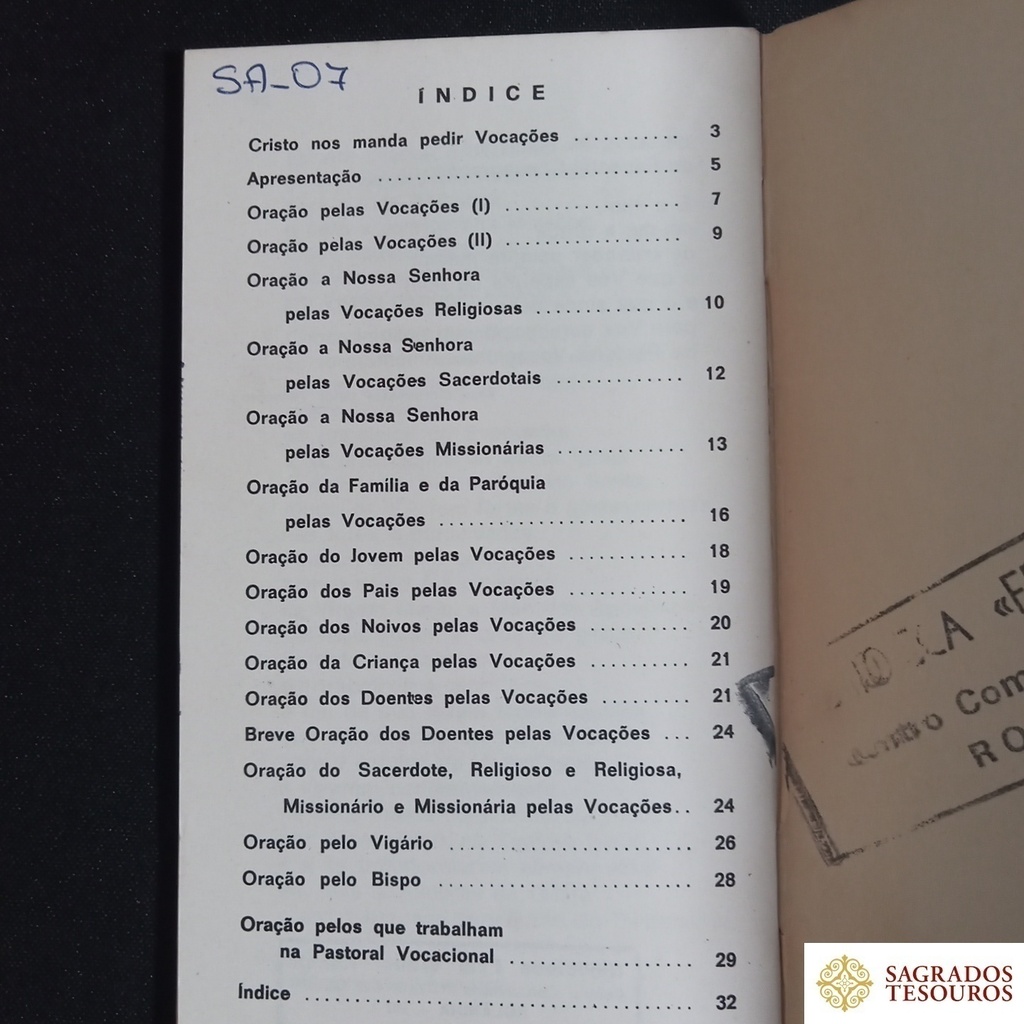 SA-07
ÍNDICE
Cristo nos manda pedir Vocações ........... 3
Apresentação ............................... 5
Oração pelas Vocações (I) .................. 7
Oração pelas Vocações (II) .................. 9
Oração a Nossa Senhora
pelas Vocações Religiosas ............... 10
Oração a Nossa Senhora
pelas Vocações Sacerdotais ............. 12
Oração a Nossa Senhora
pelas Vocações Missionárias ............. 13
Oração da Família e da Paróquia
pelas Vocações .......................... 16
Oração do Jovem pelas Vocações ............ 18
Oração dos Pais pelas Vocações ............ 19
Oração dos Noivos pelas Vocações .......... 20
Oração da Criança pelas Vocações .......... 21
Oração dos Doentes pelas Vocações ......... 21
Breve Oração dos Doentes pelas Vocações ... 24
Oração do Sacerdote, Religioso e Religiosa,
Missionário e Missionária pelas Vocações.. 24
Oração pelo Vigário ......................... 26
Oração pelo Bispo .......................... 28
Oração pelos que trabalham
na Pastoral Vocacional ................... 29
Índice ........................................ 32
Com
RO
SAGRADOS
TESOUROS